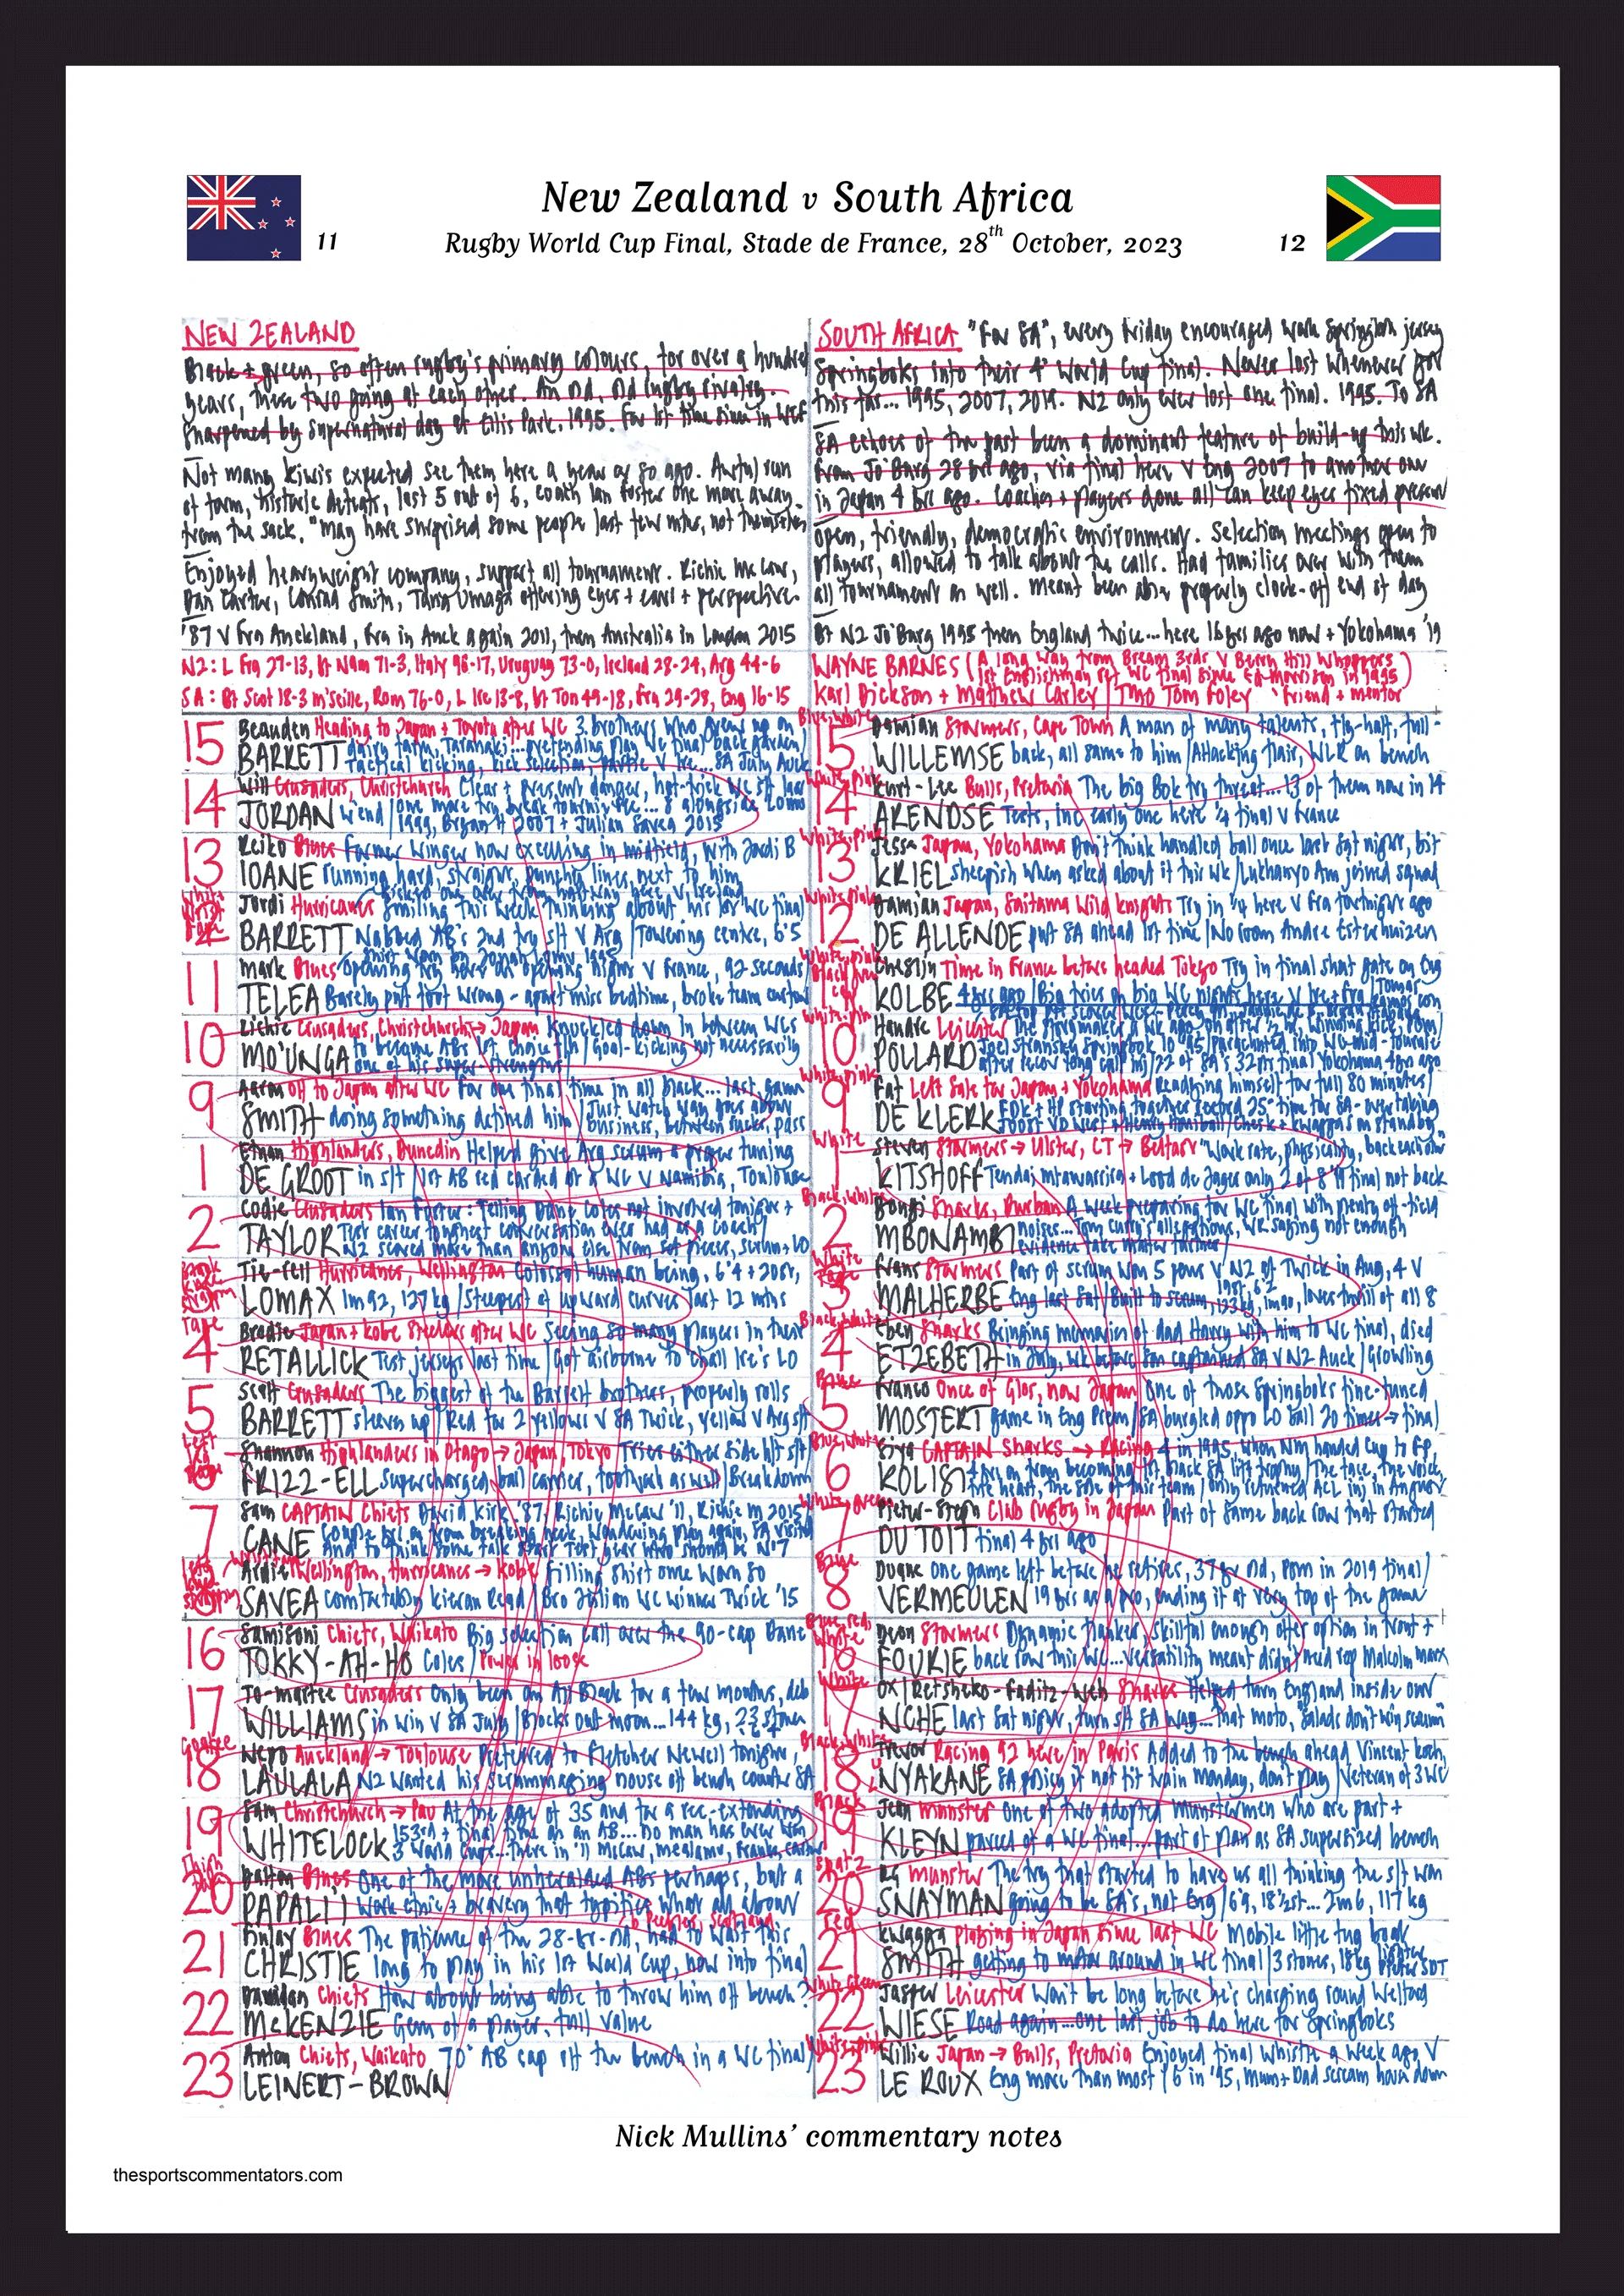 New Zealand v South Africa
11 Rugby World Cup Final, Stade de France, 28th October, 2023 12
NEW ZEALAND
Black + green, so often rugby's primary colours, for over a hundred
years, these two going at each other. An old, old rugby rivalry.
Sharpened by supernatural day at Ellis Park, 1995. For 1st time since in WCF
Not many kiwis expected see them here a year or so ago. Awful run
of form, historic defeats, lost 5 out of 6, coach Ian Foster one more away
from the sack. "May have surprised some people last few mths, not themselves
Enjoyed heavyweight company, support all tournament. Richie McCaw,
Dan Carter, Conrad Smith, Tana Umaga offering eyes + ears + perspective
'87 V Fra Auckland, Fra in Auck again 2011, then Australia in London 2015
NZ: L Fra 27-13, bt Nam 71-3, Italy 96-17, Uruguay 73-0, Ireland 28-24, Arg 44-6
SA: Bt Scot 18-3 M'seille, Rom 76-0, L Ire 13-8, bt Ton 49-18, Fra 29-28, Eng 16-15
SOUTH AFRICA "For SA", every Friday encouraged work Springbok jersey
Springboks into their 4th World Cup final. Never lost whenever got
this far... 1995, 2007, 2019. NZ only ever lost one final. 1995. To SA
SA echoes of the past been a dominant feature of build-up this wk.
From Jo'Burg 28 yrs ago, via final here V Eng 2007 to another one
in Japan 4 yrs ago. Coaches + players done all can keep eyes fixed present
open, friendly, democratic environment. Selection meetings open to
players, allowed to talk about the calls. Had families over with them
all tournament as well. Meant been able properly clock-off end of day
Bt NZ Jo'Burg 1995 then England twice... here 16 yrs ago now + Yokohama '19
WAYNE BARNES (A long way from Bream 3rds V Berry Hill Whoppers
1st Englishman ref WC final since Ed Morrison in 1995)
Karl Dickson + Matthew Carley | TMO Tom Foley 'Friend + mentor
15 Beauden Heading to Japan + Toyota after WC 3 brothers who grew up on
BARRETT dairy farm, Taranaki... pretending play WC final back garden/
Tactical kicking, kick selection,
14 Will Crusaders, Christchurch Clear + present danger, hat-trick WC s/f last
JORDAN w'end / one more try break tourny rec... 8 alongside Lomu
1999, Bryan H 2007 + Julian Savea 2015
13 Reiko Blues Former winger now excelling in midfield, with Jordi B
IOANE running hard, straight, punchy lines, next to him
12 Jordi Hurricanes Smiling this week thinking about his 1st WC final
BARRETT Nabbed AB's 2nd try s/f V Arg / Towering centre, 6'5
11 Mark Blues Opening try here on opening night V France, 92 seconds
TELEA Barely put foot wrong - apart miss bedtime, broke team curfew
10 Richie Crusaders, Christchurch → Japan Knuckled down in between WCs
MO'UNGA to become ABs 1st choice f/h / Goal-kicking not necessarily
one of his super-strengths
9 Aaron off to Japan after WC For one final time in all black... last game
SMITH doing something defined him / Just watch way goes about
business, between rucks, pass
1 Ethan Highlanders, Dunedin Helped give Arg scrum a proper tuning
DE GROOT in s/f / 1st AB red carded at a WC V Namibia, Toulouse
2 Codie Crusaders Ian Foster: Telling Dane Coles not involved tonight +
TAYLOR Test career toughest conversation ever had as a coach/
NZ scored more than anyone else from set pieces, scrum, LO
3 Tie-rell Hurricanes, Wellington Colossal human being, 6'4 + 20st,
LOMAX 1m92, 127 kg / Steepest of upward curves last 12 mths
4 Brodie Japan + Kobe Steelers after WC Seeing so many players in their
RETALLICK Test jerseys last time / Got airborne to chall Ire's LO
5 Scott Crusaders The biggest of the Barrett brothers, properly rolls
BARRETT sleeves up / Red for 2 yellows V SA Twick, yellow V Arg s/f
6 Shannon Highlanders in Otago → Japan, Tokyo Tries either side h/t s/f/
FRIZZ-ELL Supercharged ball carrier, footwork as well / Breakdown
7 Sam CAPTAIN Chiefs David Kirk '87, Richie McCaw '11, Richie M 2015/
CANE Couple yrs on from breaking neck, wondering play again, SA visited
And to think some talk start Test year who should be No 7
8 Ardie Wellington, Hurricanes → Kobe Filling shirt once worn so
SAVEA comfortably Kieran Read / Bro Julian WC winner Twick '15
16 Samisoni Chiefs, Waikato Big selection call over the 90-cap Dane
TOKKY-AH-HO Coles / Power in loose
17 Ta-maitee Crusaders Only been an All Black for a few months, deb
WILLIAMS in win V SA July / Blocks out moon... 144 kg, 23 stone
18 Nepo Auckland → Toulouse Preferred to Fletcher Newell tonight,
LAULALA NZ wanted his scrummaging nouse off bench counter SA
19 Sam Christchurch → Pau At the age of 35 and for a rec-extending
WHITELOCK 153rd + final time as an AB... No man has ever won
3 World Cups... there in '11 McCaw, Mealamu, Franks, Carter
20 Dalton Blues One of the more unheralded ABs perhaps, but a
PAPALI'I Work ethic + bravery that typifies what all about
b Peebles, Scotland
21 Finlay Blues The patience of the 28-yr-old, had to wait this
CHRISTIE long to play in his 1st World Cup, now into final
22 Damian Chiefs How about being able to throw him off bench?
McKENZIE Gem of a player, full value
23 Anton Chiefs, Waikato 70th AB cap off the bench in a WC final/
LEINERT-BROWN
15 Damian Stormers, Cape Town A man of many talents, fly-half, full-
WILLEMSE back, all same to him / Attacking flair, WLR on bench
14 Kurt-Lee Bulls, Pretoria The big Bok try threat... 13 of them now in 14
ARENDSE Tests, inc early one here 1/4 final V France
13 Jesse Japan, Yokohama Don't think handled ball once last Sat night, bit
KRIEL sheepish when asked about it this wk / Lukhanyo Am joined squad
12 Damian Japan, Saitama Wild Knights Try in 1/4 here V Fra fortnight ago
DE ALLENDE put SA ahead 1st time / No room Andre Esterhuizen
11 Cheslin Time in France before headed Tokyo Try in final shut gate on Eng
KOLBE 4 yrs ago / Big tries on big WC nights here V Ire + Fra /
10 Handre Leicester
POLLARD Joel Stransky Springbok 10 '95 / Parachuted into WC mid-tournie
after recov long calf inj / 22 of SA's 32 pts final Yokohama 4 yrs ago
9 Faf Left Sale for Japan + Yokohama Readying himself for full 80 minutes/
DE KLERK FDK + HP starting together record 25th time for SA - overtaking
Joost VD West + Henry Honiball /
1 Steven Stormers → Ulster, CT → Belfast "Work rate, physicality, back each other"
KITSHOFF Tendai Mtawarira + Lood de Jager only 2 of 8 '19 final not back
2 Bongi Sharks, Durban A week preparing for WC final with plenty off-field
MBONAMBI noises... Tom Curry's allegations, WR saying not enough
evidence take matter further
3 Frans Stormers Part of scrum won 5 pens V NZ at Twick in Aug, 4 V
MALHERBE Eng last Sat / Built to scrum, 19st, 6'2 loves thrill of all 8
4 Eben Sharks Bringing memories of dad Harry with him to WC final, died
ETZEBETH in July, wk before son captained SA V NZ Auck / Growling
5 Franco Once of Glos, now Japan One of those Springboks fine-tuned
MOSTERT game in Eng Prem / SA burgled oppo LO ball 20 times → final
6 Siya CAPTAIN Sharks → Racing 4 in 1995, when NM handed Cup to FP,
KOLISI 4 yrs on from becoming 1st black SA lift trophy / The face, the voice,
the heart, the soul of this team / Only returned ACL inj in August
7 Pieter-Steph Club rugby in Japan Part of same back row that started
DU TOIT final 4 yrs ago
8 Duane One game left before he retires, 37 yr old, POM in 2019 final/
VERMEULEN 19 yrs as a pro, ending it at very top of the game
16 Deon Stormers Dynamic flanker, skillful enough offer option in front +
FOURIE back row this WC... versatility meant didn't need rep Malcolm Marx
17 Ox / Retshako-Faditz-Weh Sharks Helped turn England inside out
NCHE last Sat night, turn s/f SA way... that moto, "Salads don't win scrums"
18 Trevor Racing 92 here in Paris Added to the bench ahead Vincent Koch,
NYAKANE SA policy if not fit train Monday, don't play / Veteran of 3 WC
19 Jean Munster One of two adopted Munstermen who are part +
KLEYN parcel of a WC final... part of plan as SA supersized bench
20 RG Munster The try that started to have us all thinking the s/f was
SNYMAN going to be SA's, not Eng / 6'9, 18½st... 2m6, 117 kg
21 Kwagga Playing in Japan since last WC Mobile little tug boat
SMITH getting to motor around in WC final / 3 stones, 18kg lighter PSDT
22 Jasper Leicester Won't be long before he's charging round Welford
WIESE Road again... one last job to do here for Springboks
23 Willie Japan → Bulls, Pretoria Enjoyed final whistle a week ago V
LE ROUX Eng more than most / 6 in '95, Mum + Dad scream house down
Nick Mullins' commentary notes
thesportscommentators.com